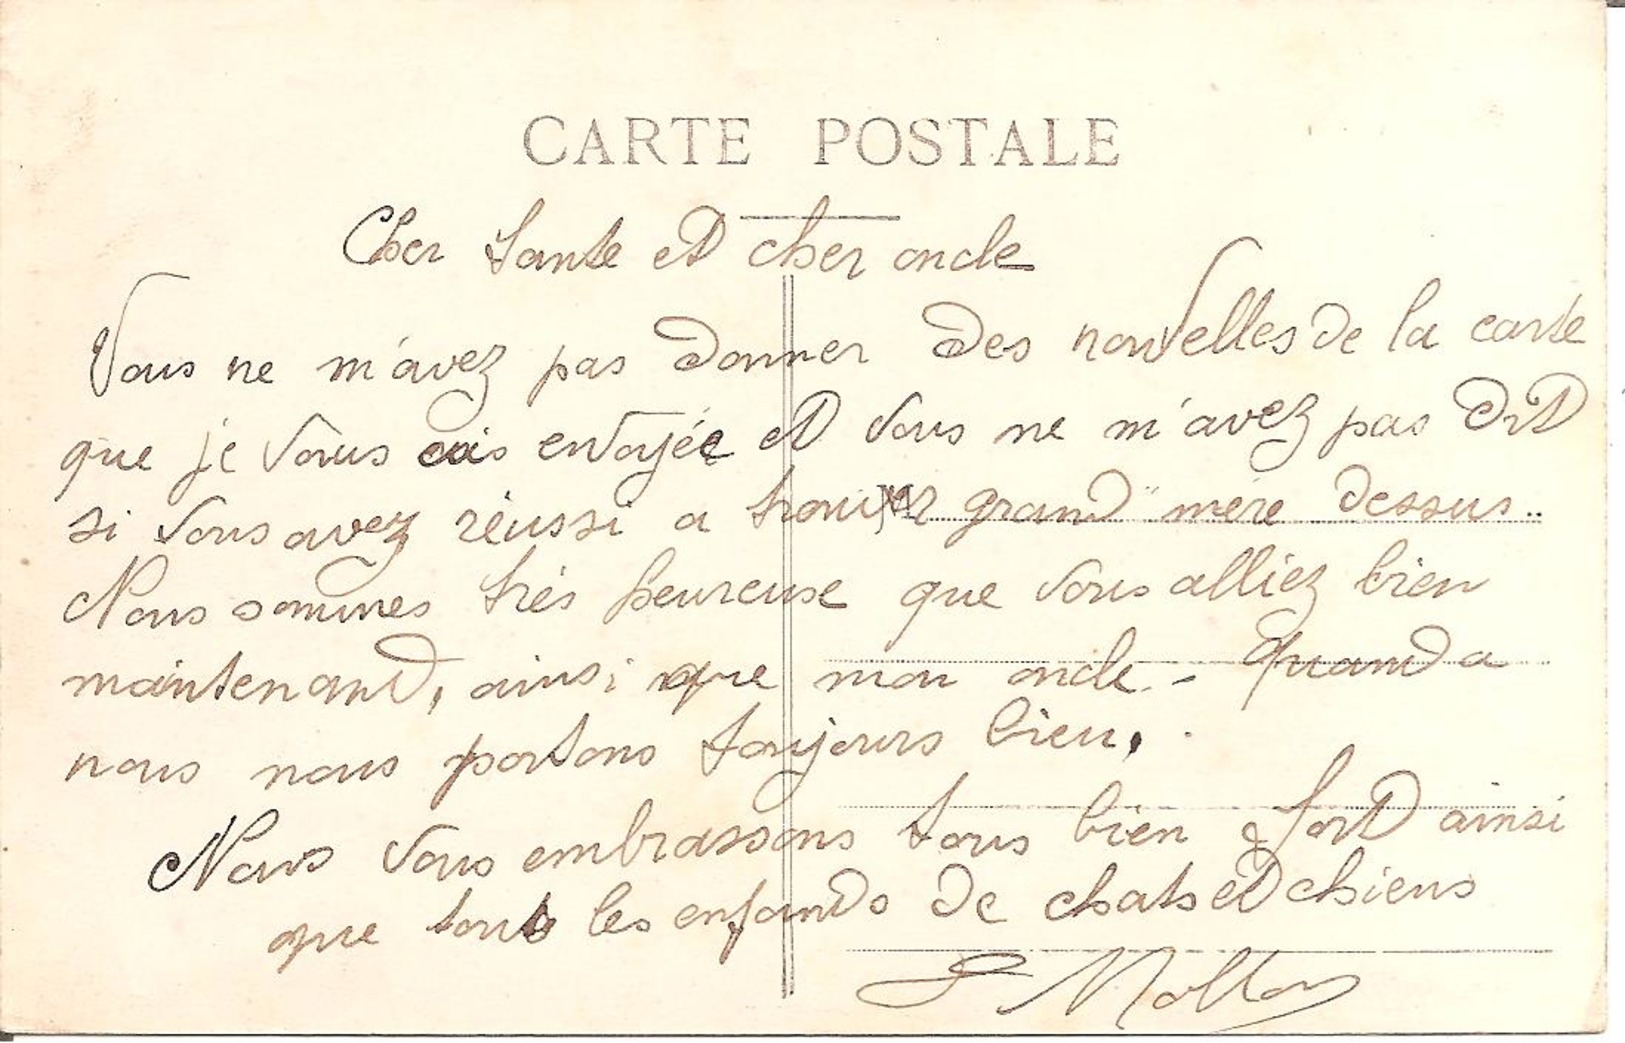 CARTE POSTALE
Cher tante et cher oncle
Vous ne m'avez pas donner des nouvelles de la carte
que je vous ais envoyée et vous ne m'avez pas dit
si vous avez réussi a trouver grand'mère dessus..
Nous sommes très heureuse que vous alliez bien
maintenant, ainsi que mon oncle. - Quand a
nous nous portons toujours bien.
Nous vous embrassons tous bien fort ainsi
que tout les enfants de chats et chiens